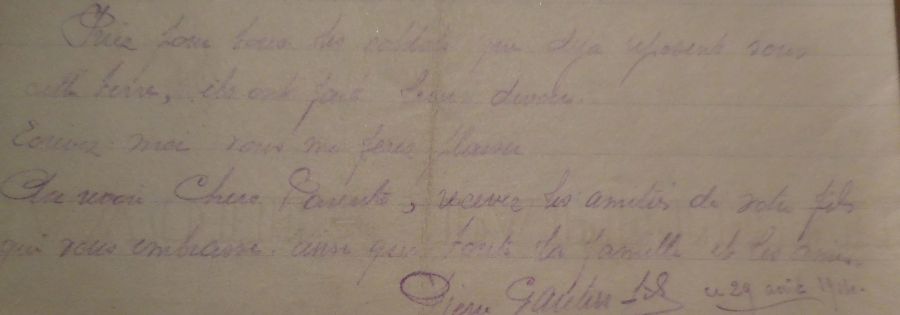 Priez pour tous les soldats qui déja reposent sous
cette terre, ils ont fait leurs devoir.
Ecrivez moi vous me ferez plaisir
Au revoir Chers Parents, recevez les amitiés de votre fils
qui vous embrasse ainsi que toute la famille et les amis.
Pierre Gautier le 29 août